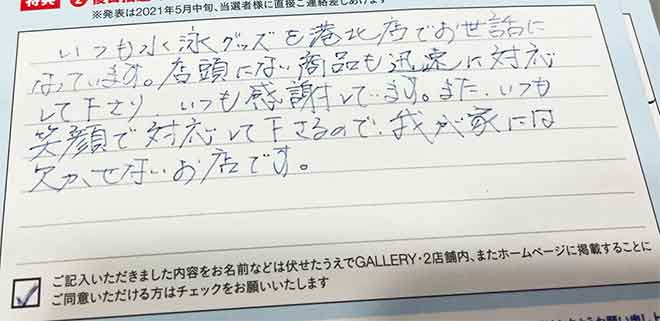 特典 2
※発表は2021年5月中旬、当選者様に直接ご連絡差しあげます
いつも水泳グッズを港北店でお世話に
なっています。店頭にない商品も迅速に対応
して下さり、いつも感謝しています。また、いつも
笑顔で対応して下さるので、我が家には
欠かせないお店です。
ご記入いただきました内容をお名前などは伏せたうえでGALLERY・2店舗内、またホームページに掲載することに
ご同意いただける方はチェックをお願いいたします